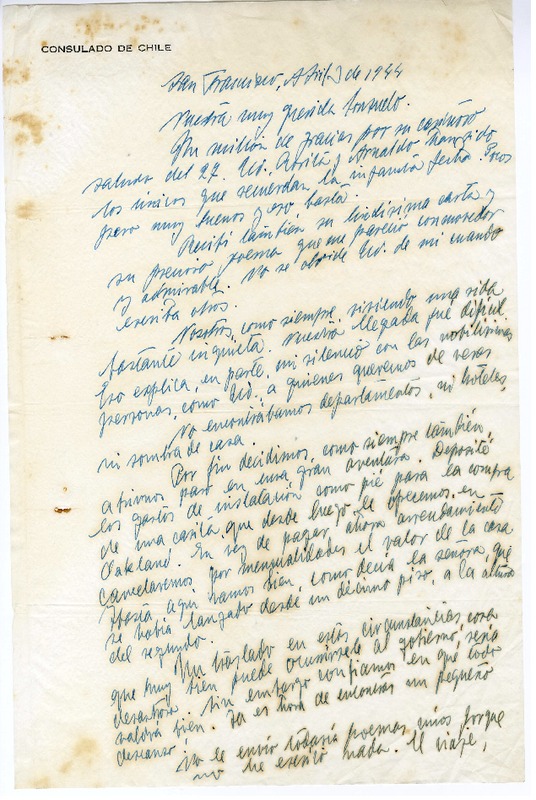 CONSULADO DE CHILE
San Francisco, Abril de 1944
Nuestra muy querida Consuelo.
Un millón de gracias por su cariñoso
saludo del 27. Ud., y Arnaldo
los únicos que recuerdan la fecha. Pocos
pero muy buenos y eso basta.
Recibí también su lindísima carta y
su precioso poema que me pareció conmovedor
y admirable. No se olvide Ud. de mí cuando
escriba otros.
Nosotros, como siempre, viviendo una vida
bastante inquieta. Nuestra llegada fué difícil.
Eso explica, en parte, mi silencio con las nobilísimas
personas, como Ud., a quienes queremos de veras
No encontrábamos departamentos, ni hoteles,
ni sombra de casa.
Por fin decidimos, como siempre también,
abrirnos paso en una gran aventura. Deposité
los gastos de instalación como pie para la compra
de una casita que desde luego le ofrecemos, en
Oakland. En vez de pagar ahora arrendamiento
cancelaremos por mensualidades el valor de la casa
Hasta aquí vamos bien, como decía la señora, que
se había lanzado desde un décimo piso, a la altura
del segundo.
Un traslado en estas circunstancias, cosa
que muy bien puede ocurrírsele al gobierno, sería
desastroso. Sin embargo confiamos en que todo
saldrá bien. Ya es hora de encontrar un pequeño
descanso.
No le envío todavía poemas míos porque
no he escrito nada. El viaje,